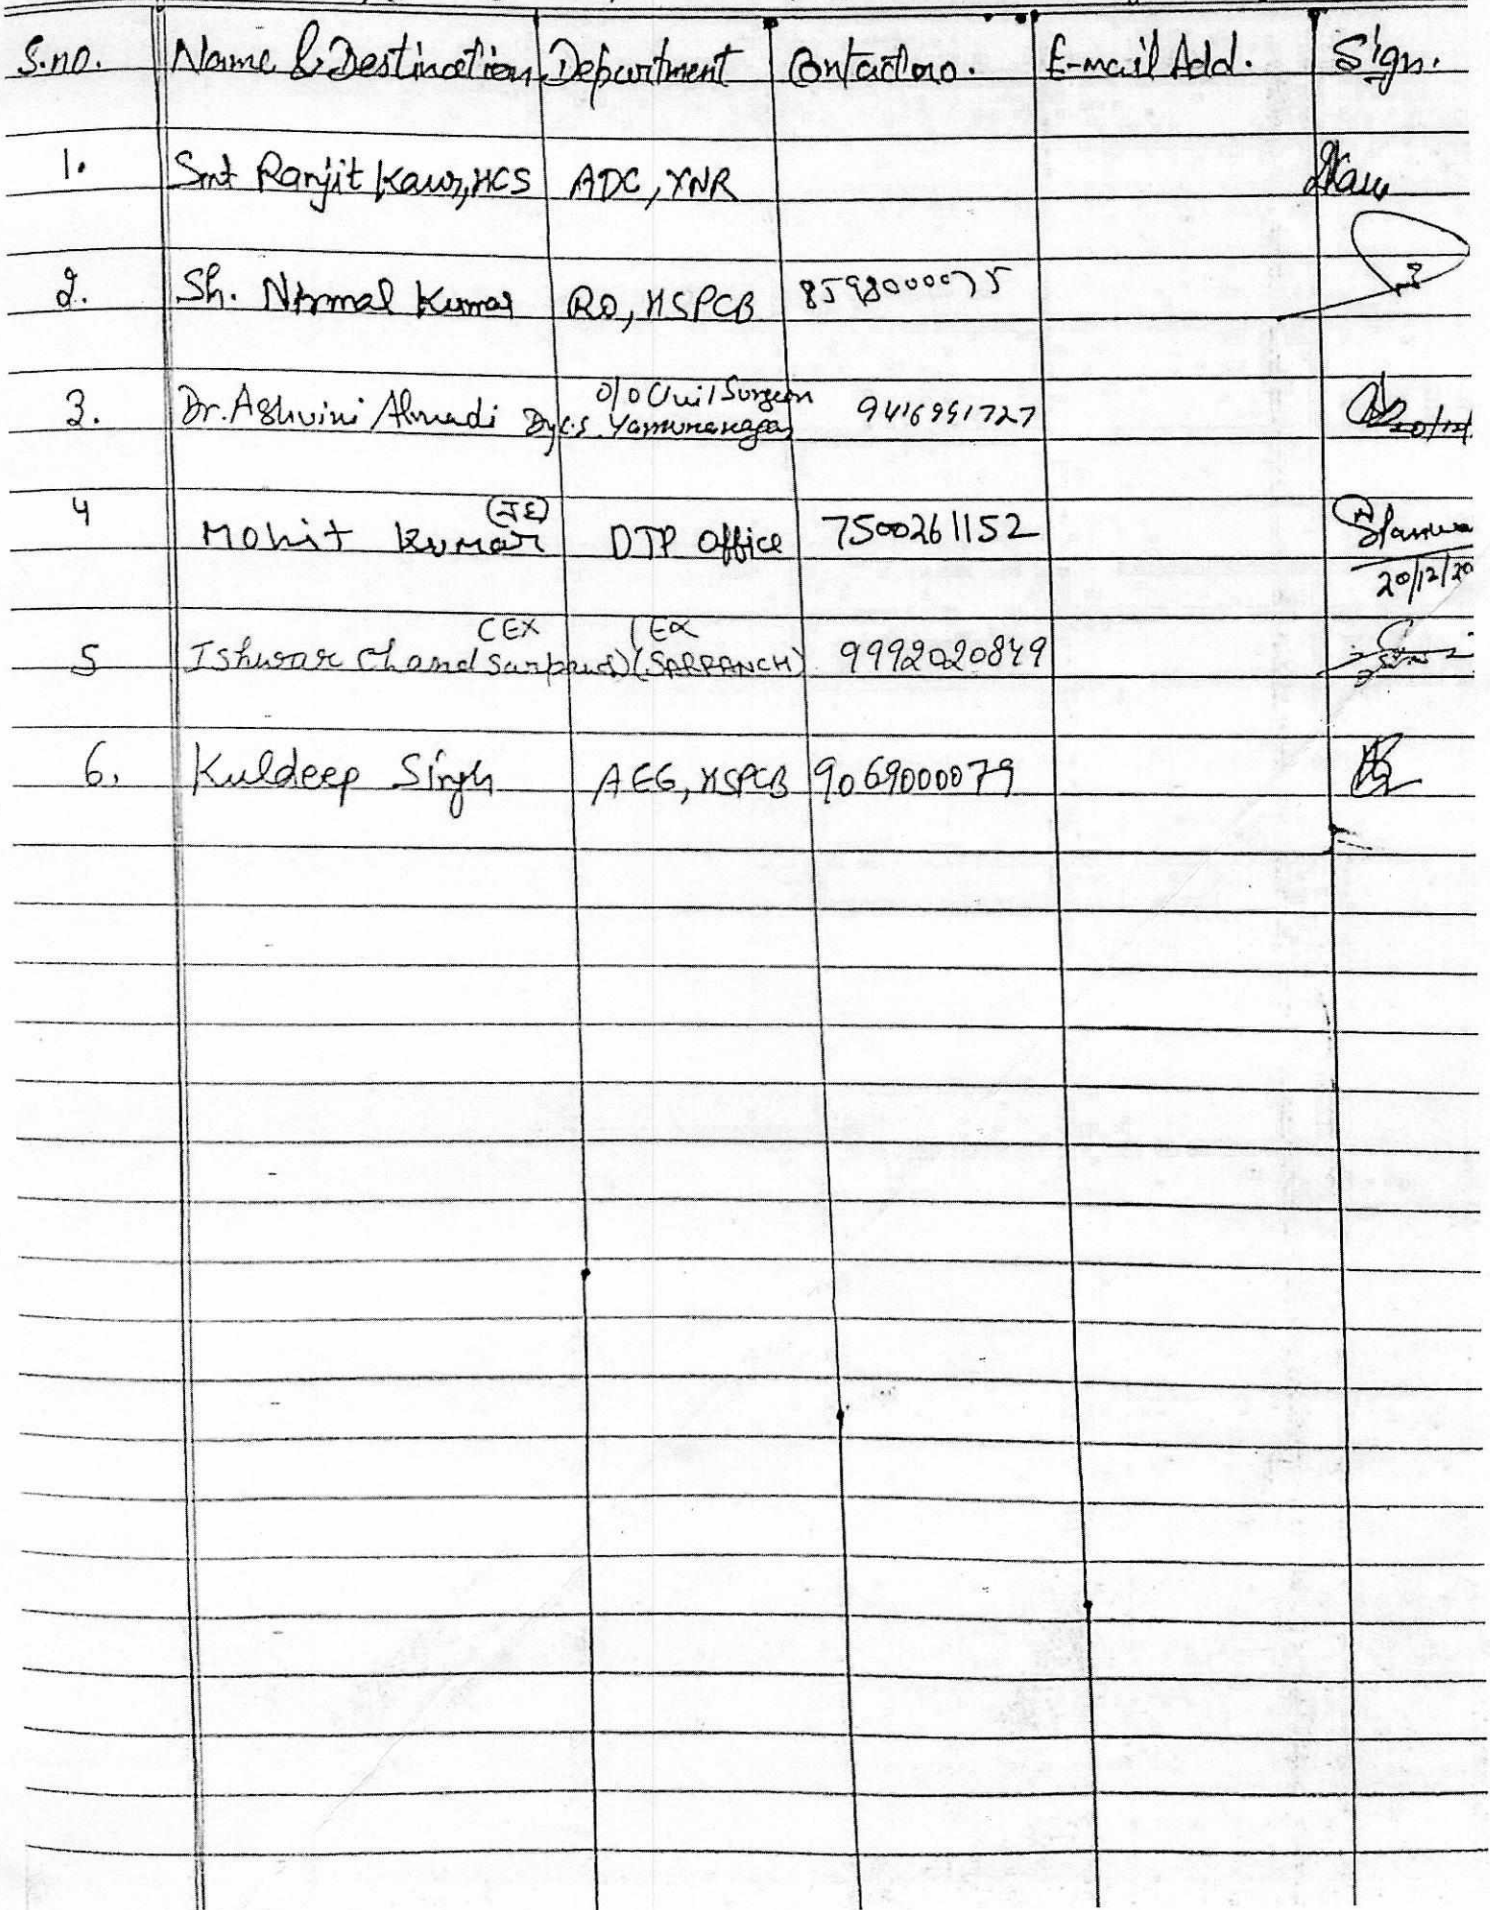 S.no. Name & Destination Department Contact no. E-mail Add. Sign.
1. Smt Ranjit Kaur, HCS ADC, YNR
2. Sh. Nirmal Kumar RO, HSPCB 8598000075
O/o Civil Surgeon
3. Dr. Ashvini Dy C.S. Yamunanagar 9416991727
(JE)
4 Mohit Kumar DTP Office 7500261152
20/12/20
CEX (EX
5 Ishwar Chand Sarpanch) (SARPANCH) 9992020849
6. Kuldeep Singh AEE, HSPCB 9069000079